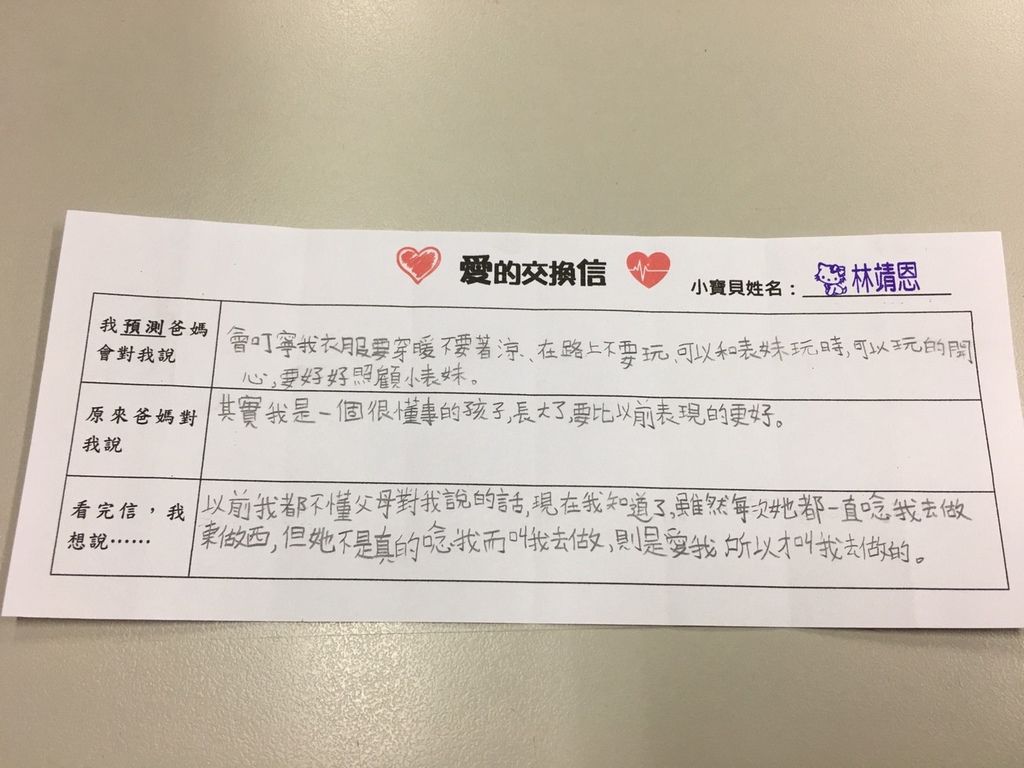 愛的交換信
小寶貝姓名：林靖恩
我預測爸媽
會對我說
會叮寧我衣服要穿暖不要著涼、在路上不要玩,可以和表妹玩,時,可以玩的開
心,要好好照顧小表妹。
原來爸媽對
我說
其實我是一個很懂事的孩子,長大了,要比以前表現的更好。
看完信，我
想說……
以前我都不懂父母對我說的話,現在我知道了,雖然每次她都一直唸我去做
東做西,但她不是真的唸我而叫我去做,則是愛我,所以才叫我去做的。